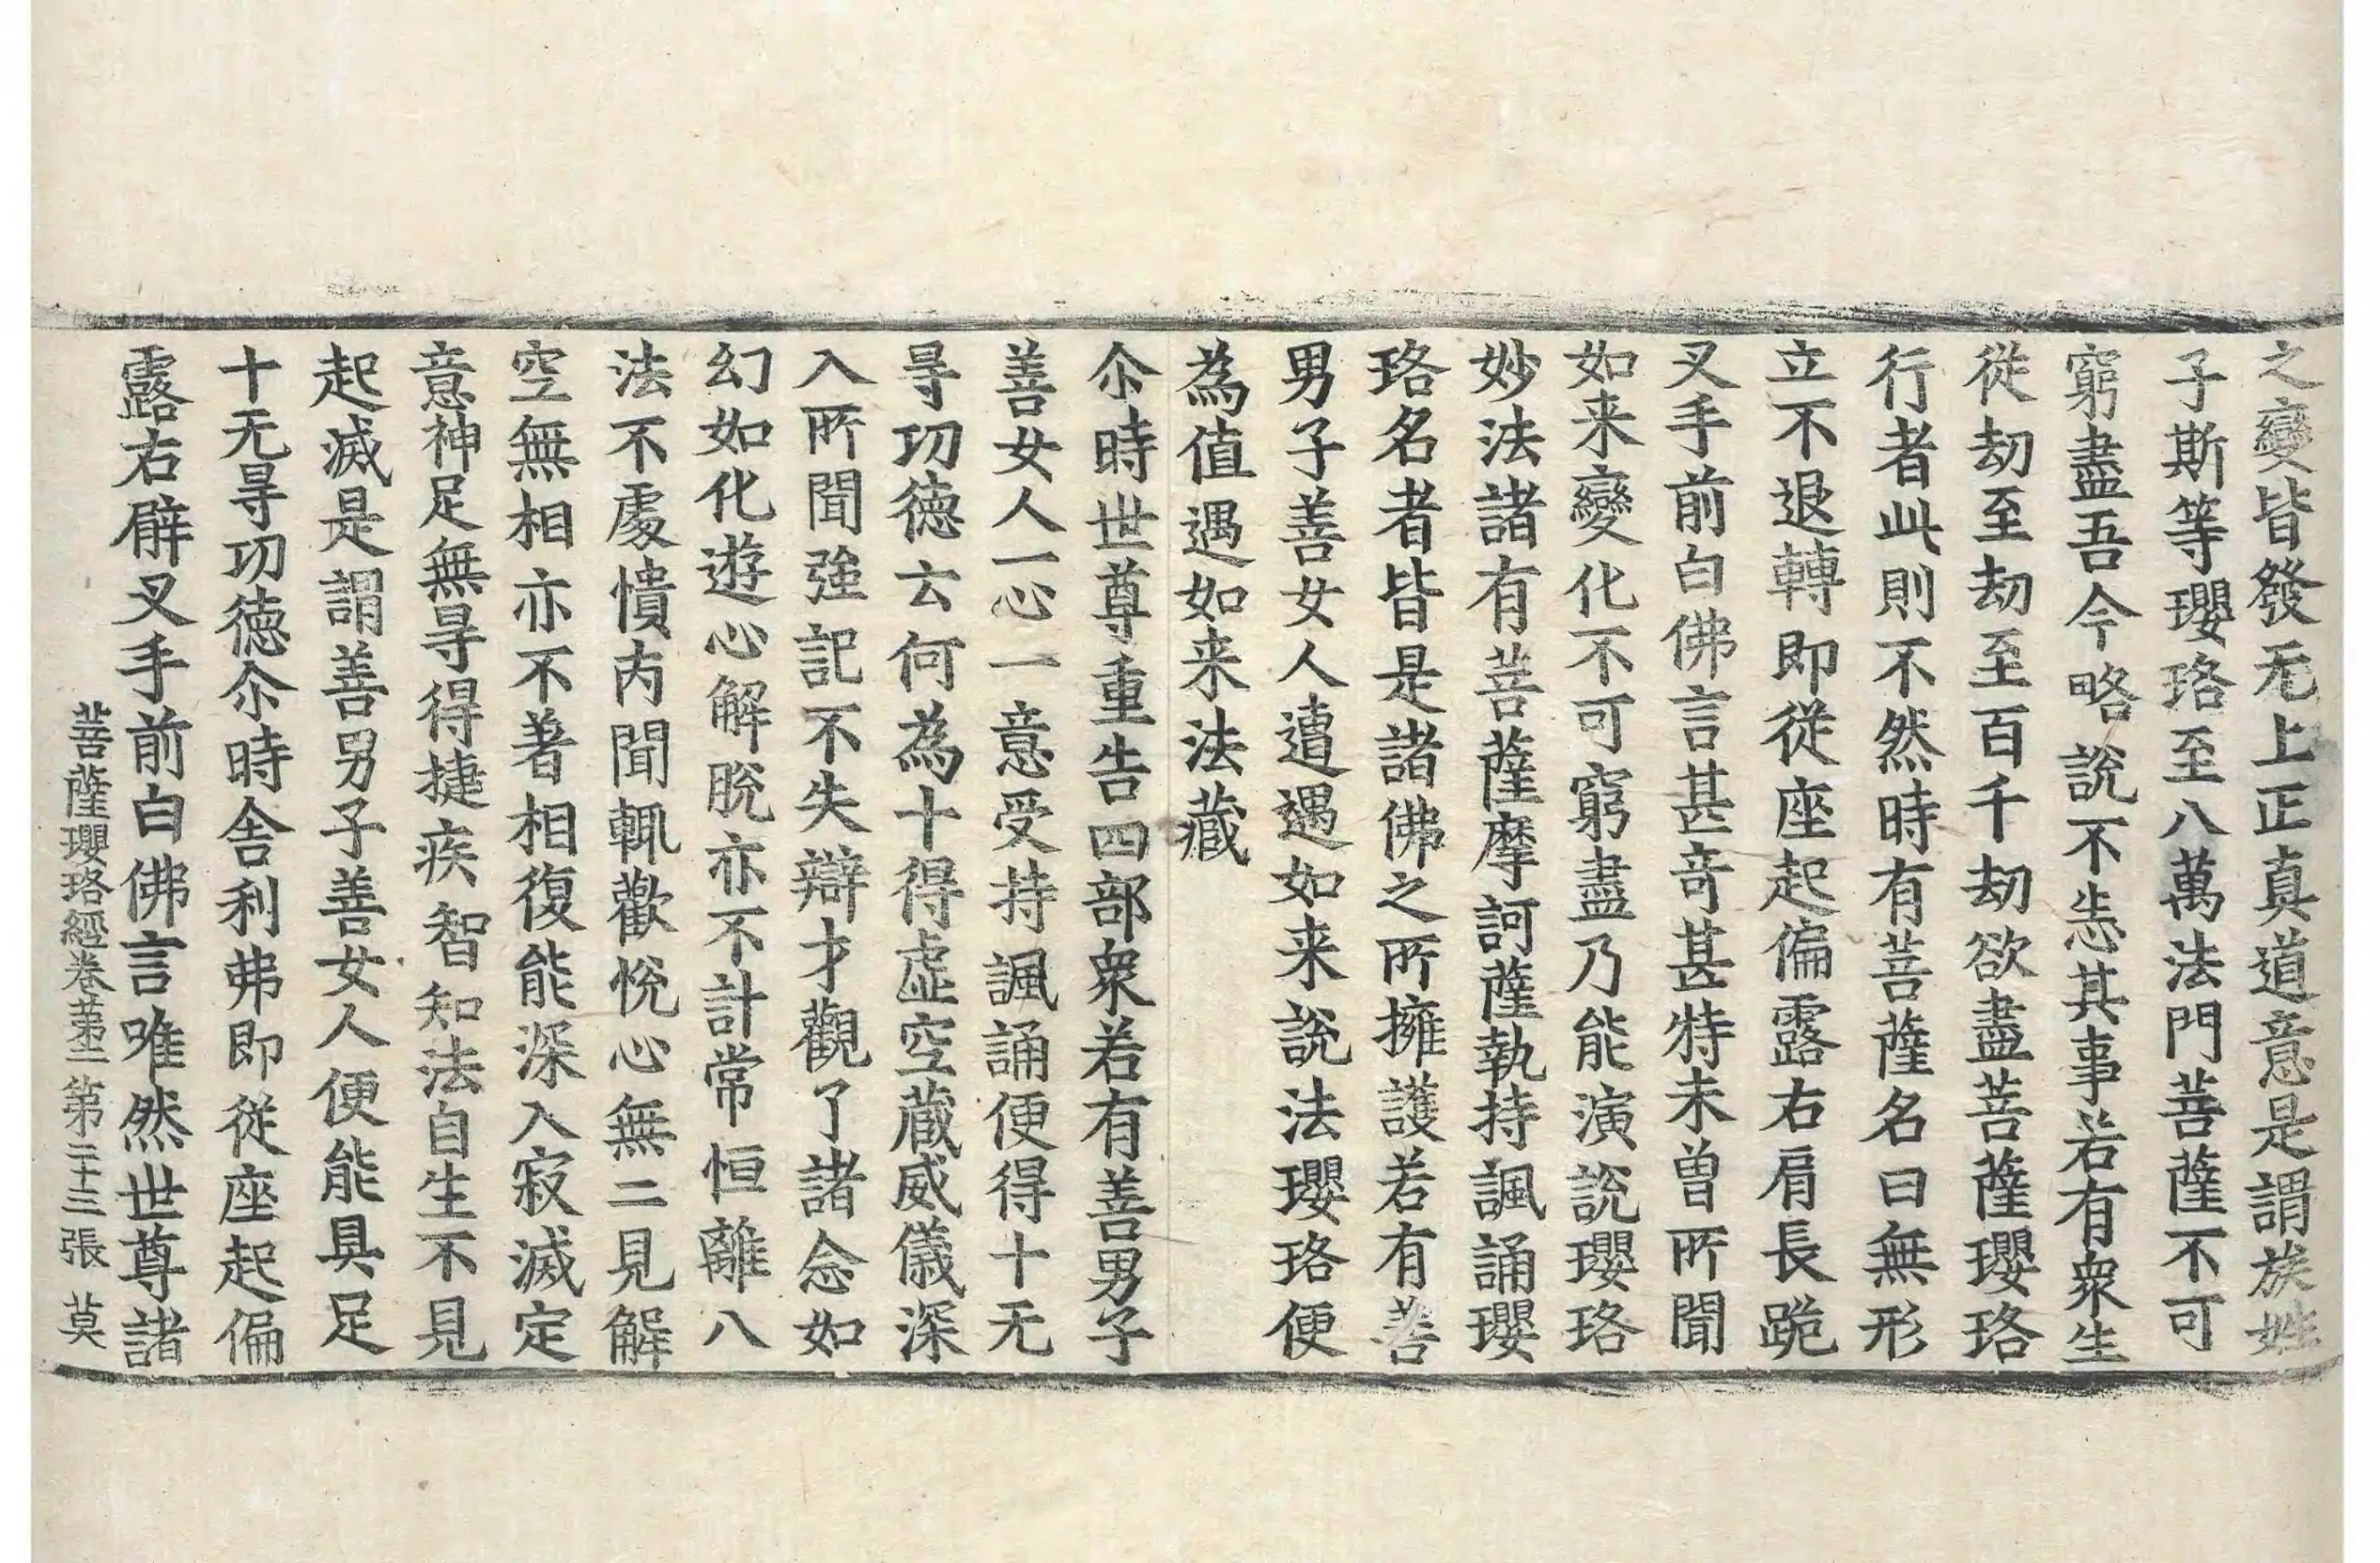 之變皆發无上正真道意是謂族姓
子斯等瓔珞至八萬法門菩薩不可
窮盡吾今略說不恙其事若有衆生
從劫至劫至百千劫欲盡菩薩瓔珞
行者此則不然時有菩薩名曰無形
立不退轉即從座起偏露右肩長跪
叉手前白佛言甚奇甚特未曾所聞
如来變化不可窮盡乃能演說瓔珞
妙法諸有菩薩摩訶薩執持諷誦瓔
珞名者皆是諸佛之所擁護若有善
男子善女人遭遇如来說法瓔珞便
為值遇如来法藏
尒時世尊重告四部衆若有善男子
善女人一心一意受持諷誦便得十无
㝵功德云何為十得虛空藏威儀深
入所聞強記不失辯才觀了諸念如
幻如化遊心解脫亦不計常恒離八
法不處憒内聞輒歡悅心無二見解
空無相亦不著相復能深入寂滅定
意神足無㝵得捷疾智知法自生不見
起滅是謂善男子善女人便能具足
十无㝵功德尒時舍利弗即從座起偏
露右臂叉手前白佛言唯然世尊諸
菩薩瓔珞經卷苐二 第二十三張 莫